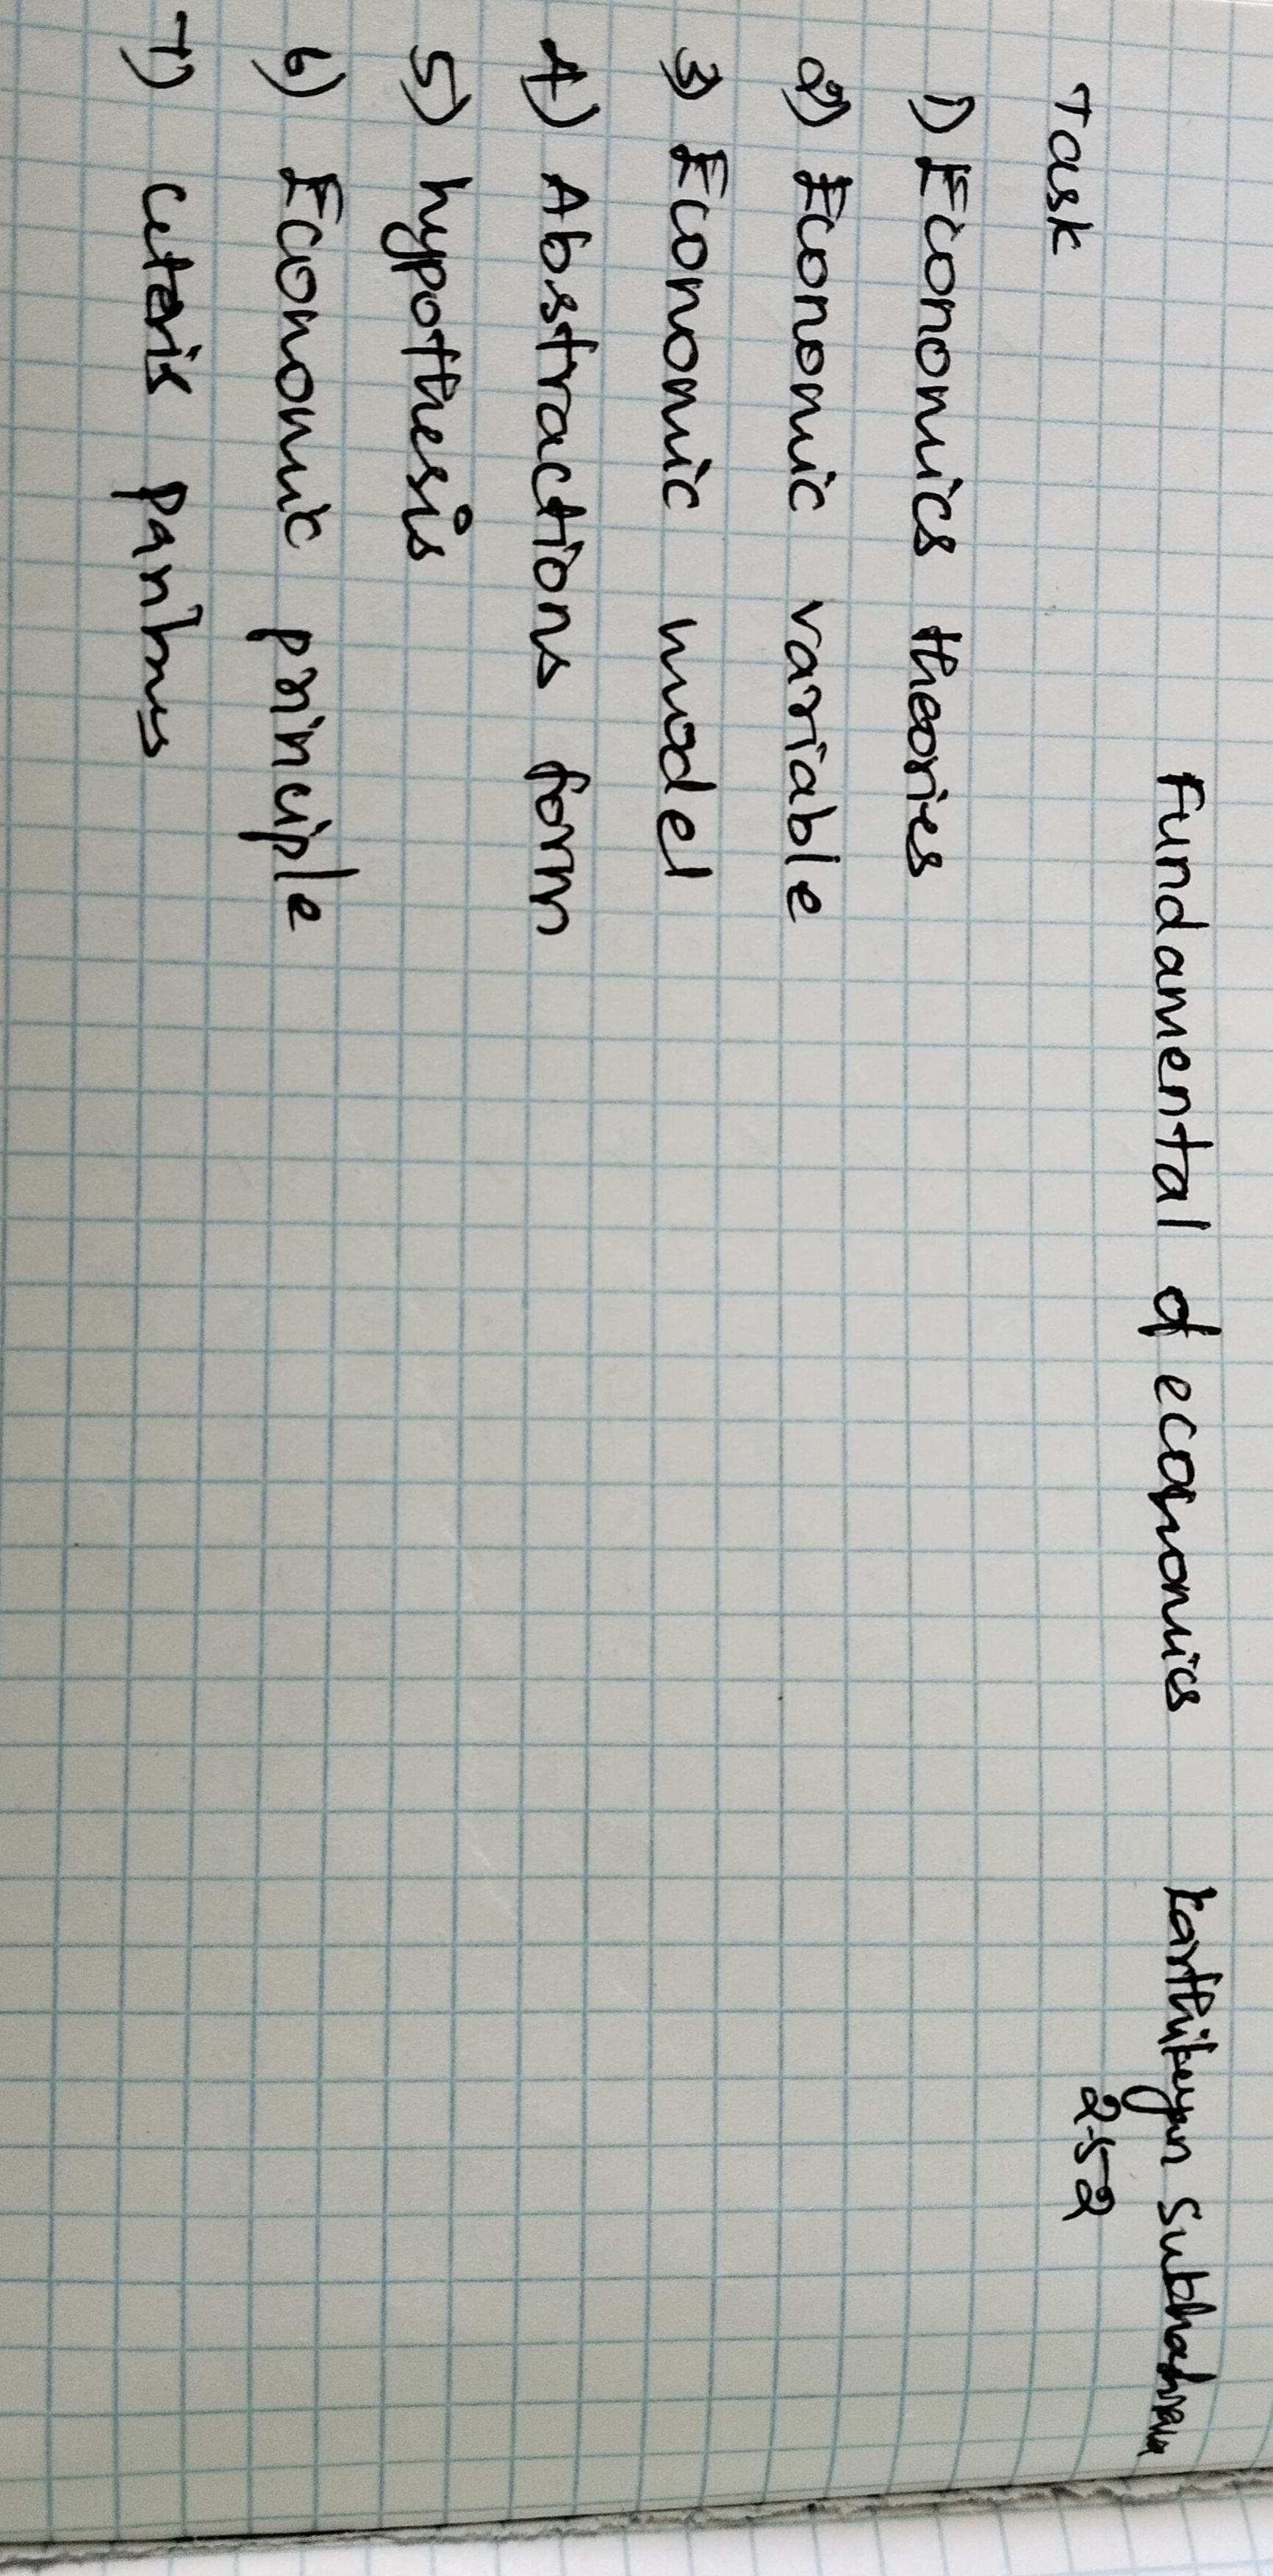 Fundamental of economics Karthikeyan
252
Task
1) Economics theories
2) Economic variable
3) Economic model
4) Abstractions form
5) hypothesis
6) Economic principle
7) Ceteris paribus